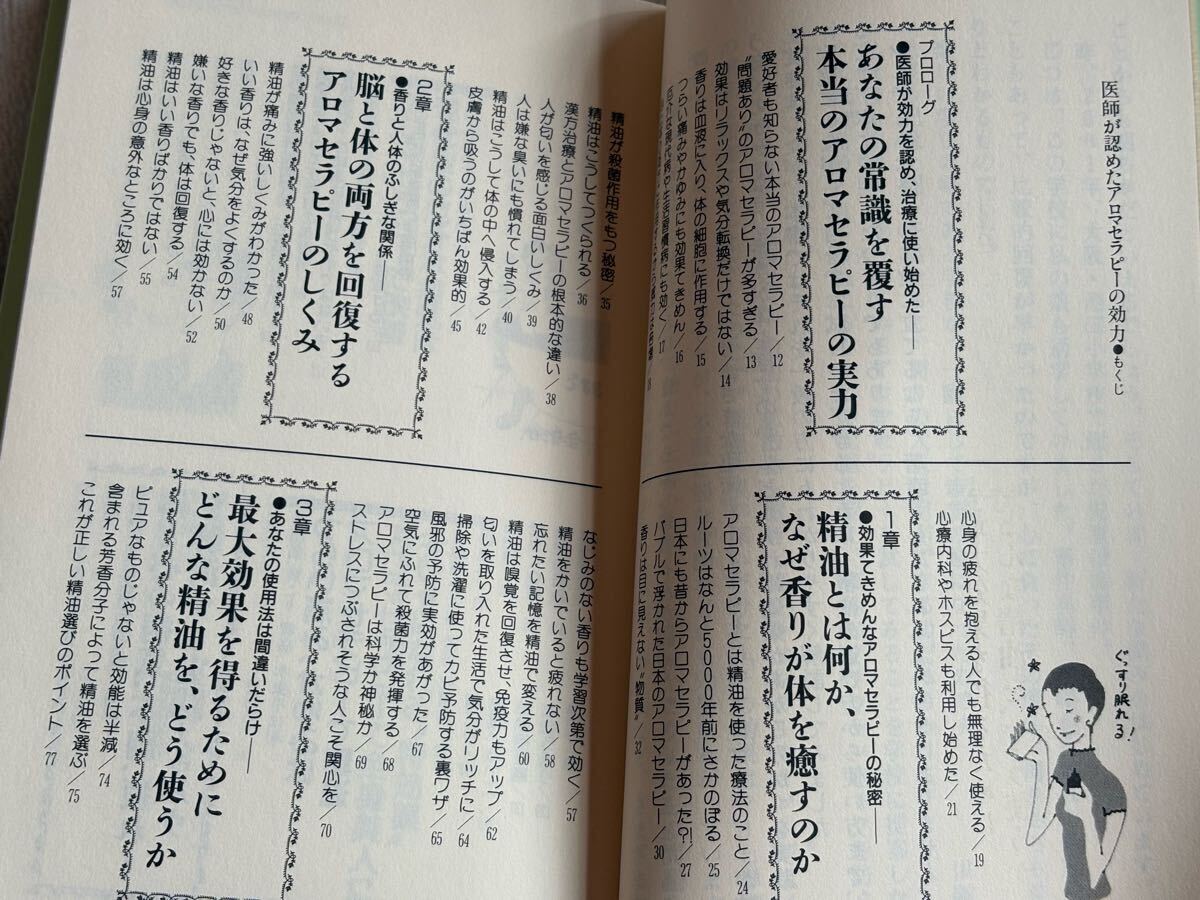 医師が認めたアロマセラピーの効力●もくじ
プロローグ
●医師が効力を認め、治療に使い始めた――
あなたの常識を覆す
本当のアロマセラピーの実力
愛好者も知らない本当のアロマセラピー/12
“問題あり”のアロマセラピーが多すぎる/13
効果はリラックスや気分転換だけではない/14
香りは血液に入り、体の細胞に作用する/15
つらい痛みやかゆみにも効果てきめん/16
現代病や生活習慣病にも効く/17
18
心身の疲れを抱える人でも無理なく使える/19
心療内科やホスピスも利用し始めた/21
ぐっすり眠れる!
1章
●効果てきめんなアロマセラピーの秘密――
精油とは何か、
なぜ香りが体を癒すのか
アロマセラピーとは精油を使った療法のこと/24
ルーツはなんと5000年前にさかのぼる/25
日本にも昔からアロマセラピーがあった?!/27
バブルで浮かれた日本のアロマセラピー/30
香りは目に見えない“物質”/32
精油が殺菌作用をもつ秘密/35
精油はこうしてつくられる/36
漢方治療とアロマセラピーの根本的な違い/38
人が匂いを感じる面白いしくみ/39
人は嫌な臭いにも慣れてしまう/40
精油はこうして体の中へ侵入する/42
皮膚から吸うのがいちばん効果的/45
2章
●香りと人体のふしぎな関係――
脳と体の両方を回復する
アロマセラピーのしくみ
精油が痛みに強いしくみがわかった/48
いい香りは、なぜ気分をよくするのか/50
好きな香りじゃないと、心には効かない/52
嫌いな香りでも、体は回復する/54
精油はいい香りばかりではない/55
精油は心身の意外なところに効く/57
なじみのない香りも学習次第で効く/57
精油をかいでいると疲れない/58
忘れたい記憶を精油で変える/60
精油は嗅覚を回復させ、免疫力もアップ/62
匂いを取り入れた生活で気分がリッチに/64
掃除や洗濯に使ってカビ予防する裏ワザ/65
風邪の予防に実効があがった/67
空気にふれて殺菌力を発揮する/68
アロマセラピーは科学か神秘か/69
ストレスにつぶされそうな人こそ関心を/70
3章
●あなたの使用法は間違いだらけ――
最大効果を得るために
どんな精油を、どう使うか
ピュアなものじゃないと効能は半減/74
含まれる芳香分子によって精油を選ぶ/75
これが正しい精油選びのポイント/77